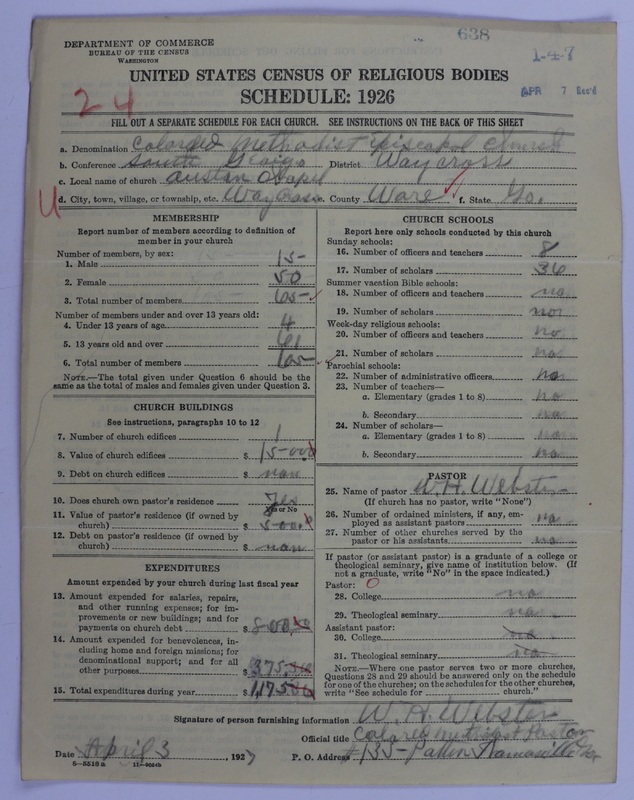 638
DEPARTMENT OF COMMERCE
BUREAU OF THE CENSUS
WASHINGTON
1-4-7
APR 7 Rec'd
UNITED STATES CENSUS OF RELIGIOUS BODIES
SCHEDULE: 1926
24
FILL OUT A SEPARATE SCHEDULE FOR EACH CHURCH. SEE INSTRUCTIONS ON THE BACK OF THIS SHEET
a. Denomination Colored Methodist Episcopal Church
b. Conference South Georgia District Waycross
c. Local name of church Austin Chapel
U
d. City, town, village, or township, etc. Waycross e. County Ware f. State Ga.
MEMBERSHIP
Report number of members according to definition of
member in your church
Number of members, by sex:
1. Male 15
2. Female 50
3. Total number of members 65
Number of members under and over 13 years old:
4. Under 13 years of age 4
5. 13 years old and over 61
6. Total number of members 65
NOTE.—The total given under Question 6 should be the
same as the total of males and females given under Question 3.
CHURCH BUILDINGS
See instructions, paragraphs 10 to 12
7. Number of church edifices 1
8. Value of church edifices $ 1500
9. Debt on church edifices $ non
10. Does church own pastor's residence Yes
Yes or No
11. Value of pastor's residence (if owned by
church) $ 500
12. Debt on pastor's residence (if owned by
church) $ non
EXPENDITURES
Amount expended by your church during last fiscal year
13. Amount expended for salaries, repairs,
and other running expenses; for im-
provements or new buildings; and for
payments on church debt $ 800.00
14. Amount expended for benevolences, in-
cluding home and foreign missions; for
denominational support; and for all
other purposes $ 375.00
15. Total expenditures during year $ 1,175.00
CHURCH SCHOOLS
Report here only schools conducted by this church
Sunday schools:
16. Number of officers and teachers 8
17. Number of scholars 36
Summer vacation Bible schools:
18. Number of officers and teachers no
19. Number of scholars no
Week-day religious schools:
20. Number of officers and teachers no
21. Number of scholars no
Parochial schools:
22. Number of administrative officers no
23. Number of teachers—
a. Elementary (grades 1 to 8) no
b. Secondary no
24. Number of scholars—
a. Elementary (grades 1 to 8) no
b. Secondary no
PASTOR
25. Name of pastor W. H. Webster
(If church has no pastor, write "None")
26. Number of ordained ministers, if any, em-
ployed as assistant pastors no
27. Number of other churches served by the
pastor or his assistants no
If pastor (or assistant pastor) is a graduate of a college or
theological seminary, give name of institution below. (If
not a graduate, write "No" in the space indicated.)
Pastor: 0
28. College no
29. Theological seminary no
Assistant pastor:
30. College no
31. Theological seminary no
NOTE.—Where one pastor serves two or more churches,
Questions 28 and 29 should be answered only on the schedule
for one of the churches; on the schedules for the other churches,
write "See schedule for church."
Signature of person furnishing information W. H. Webster
Official title Colored Methodist Pastor
Date April 3, 1927 P. O. Address #135
8-5518 a 11-9064b